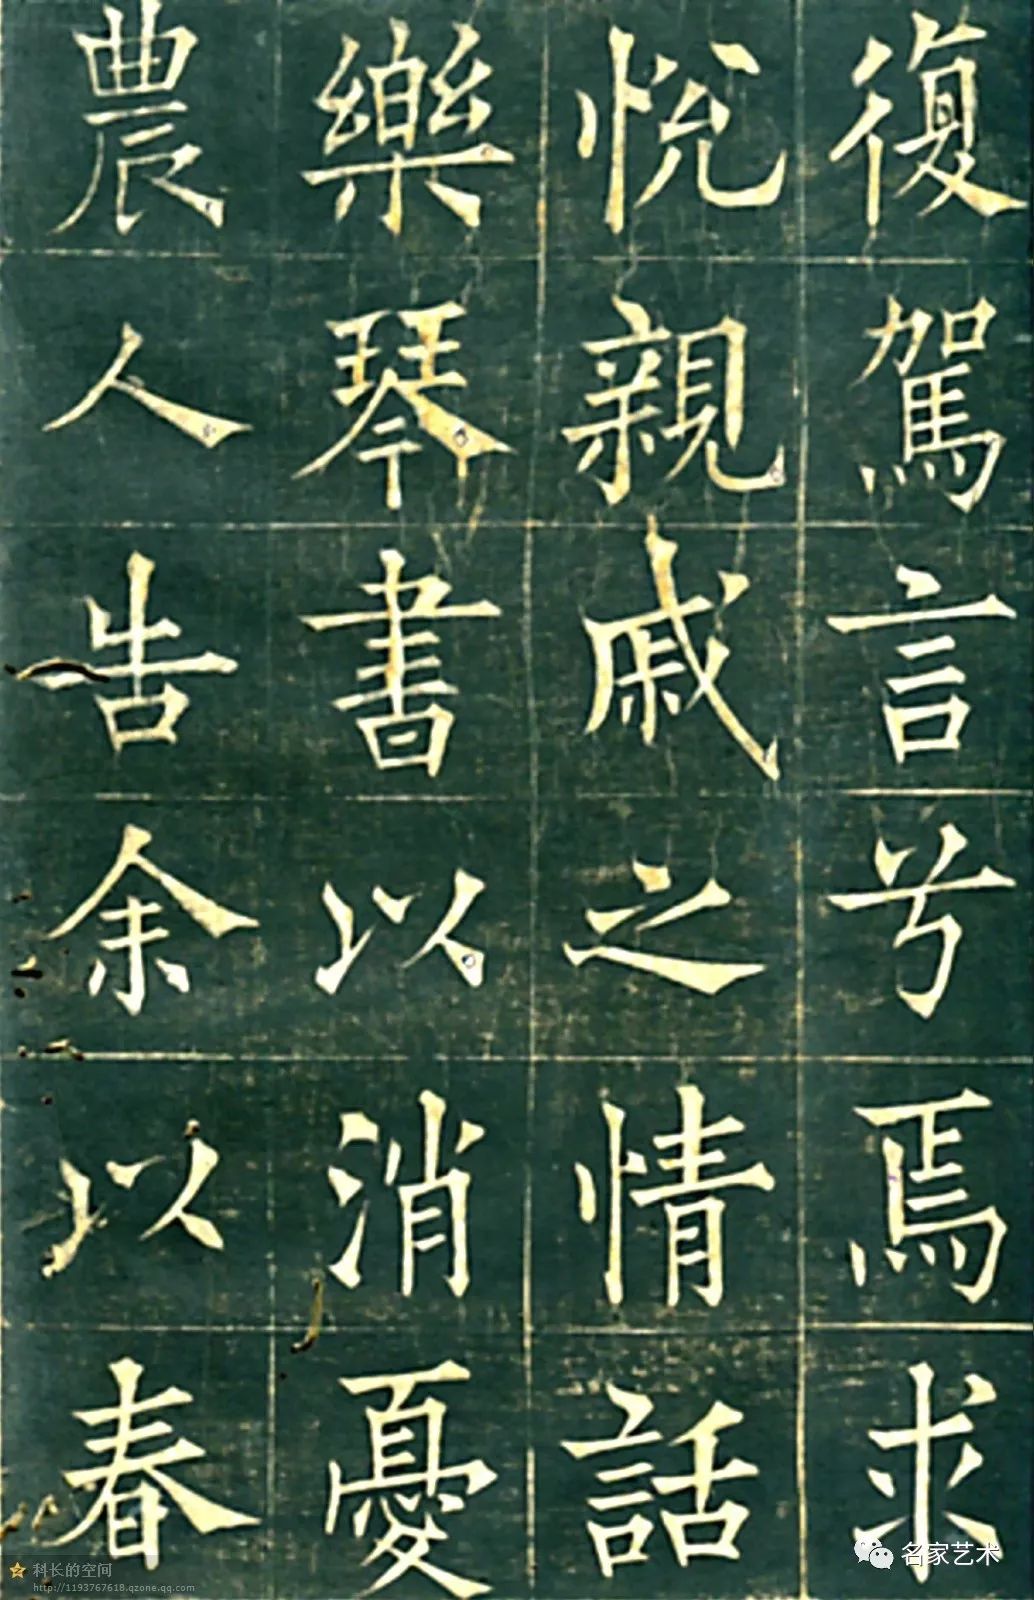 復駕言兮焉求
悅親戚之情話
樂琴書以消憂
農人告余以春
科长的空间
http://1193767618.qzone.qq.com
名家艺术